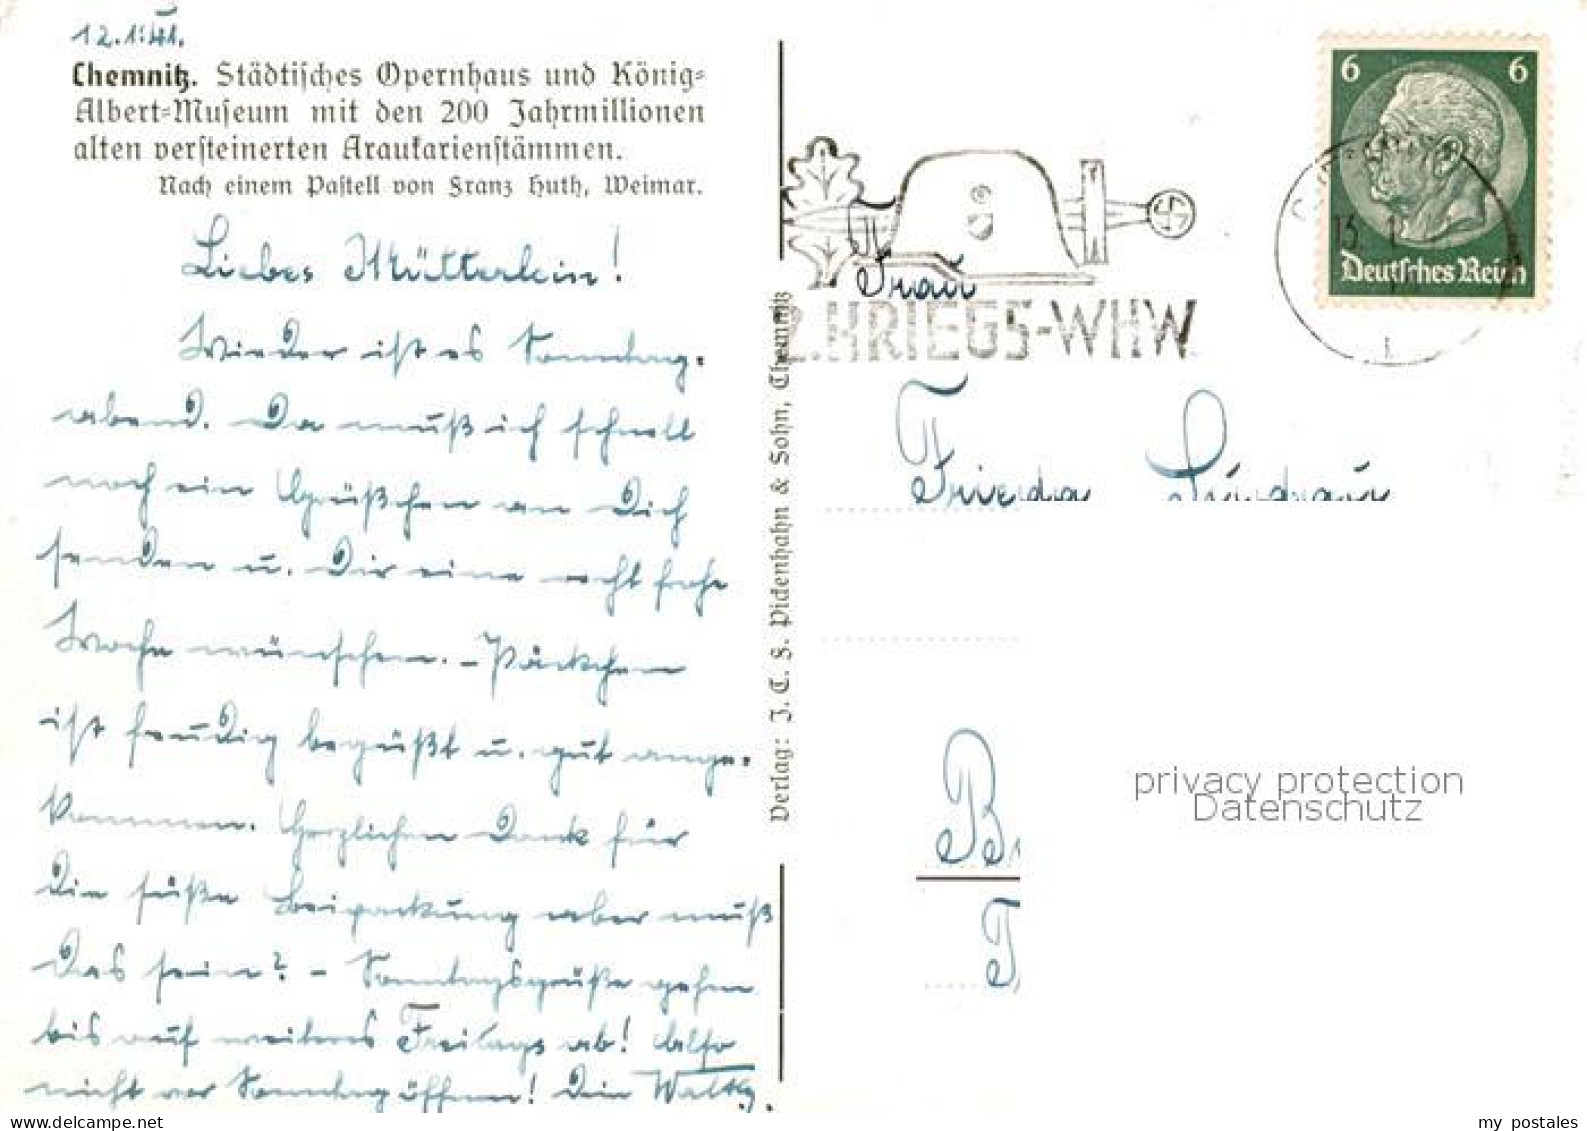 12.1.41.
Chemnitz. Städtisches Opernhaus und König-
Albert-Museum mit den 200 Jahrmillionen
alten versteinerten Araukarienstämmen.
Nach einem Pastell von Franz Huth, Weimar.
Liebes Mütterlein!
Wieder ist es Sonntag-
abend. Da muß ich schnell
noch ein Grüßchen an Dich
senden u. Dir eine recht frohe
Woche wünschen. – Päckchen
ist freudig begrüßt u. gut ange-
kommen. Herzlichen Dank für
die süße Beipackung aber muß
das sein? – Sonntagsgrüße gehen
bis auf weiteres Freitags ab! Also
nicht vor Sonntag öffnen! Dein
Verlag: J. C. F. Pickenhahn & Sohn, Chemnitz
2. KRIEGS-WHW
6 6
Deutsches Reich
13. 1
Frau
Frieda
privacy protection
Datenschutz
delcampe.net
my_postales